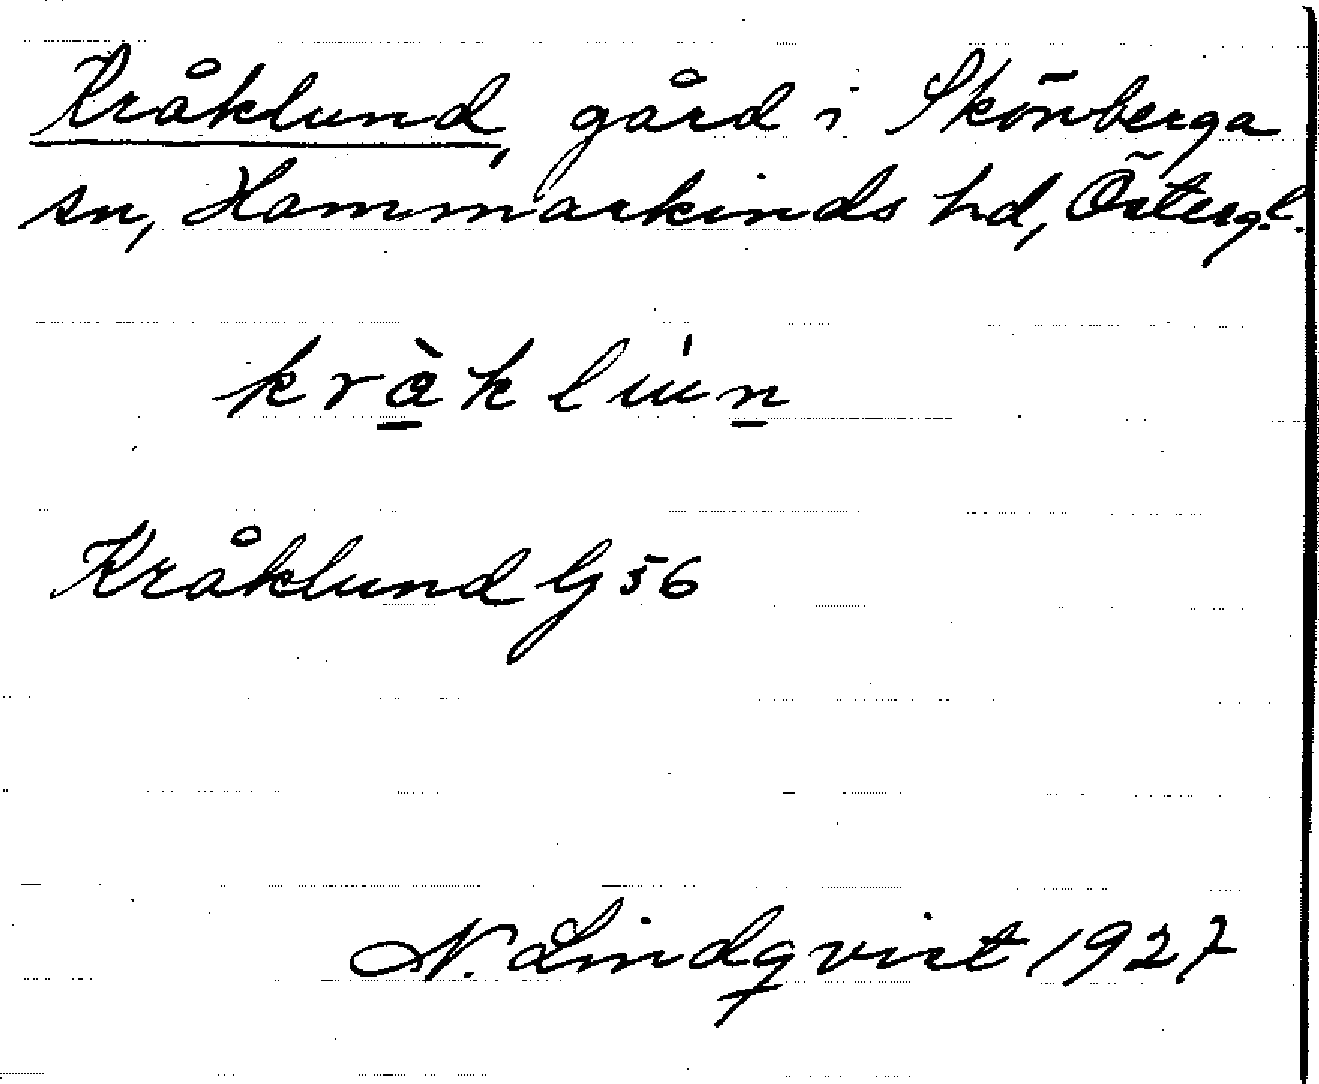 Kråklund, gård i Skönberga
sn, Hammarkinds hd, Östergl.
kràklún
Kråklund G 56
N. Lindqvist 1927